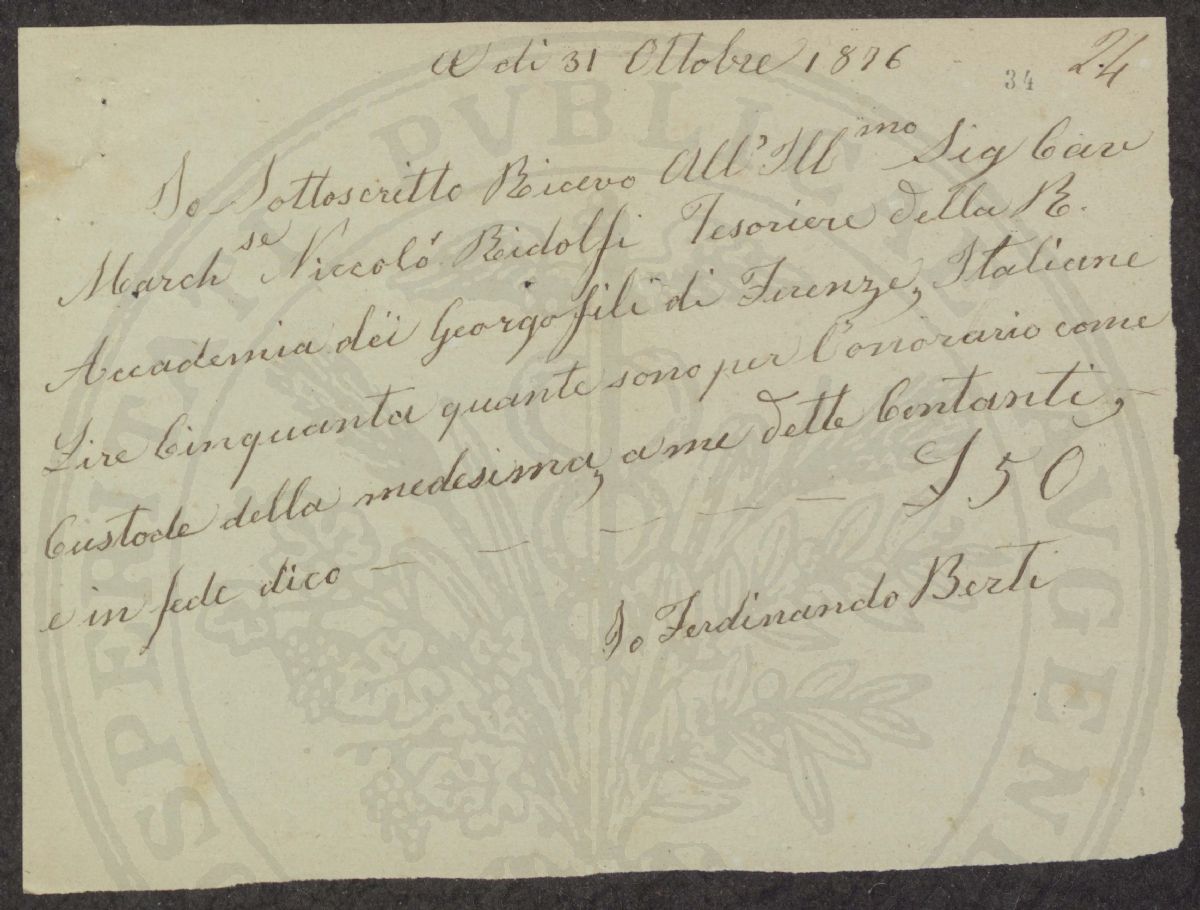 A di 31 Ottobre 1876
34
24
Io Sottoscritto Ricevo All' Ill mo Sig Cav
March se Niccoló Ridolfi Tesoriere della R.
Accademia dei Georgofili di Firenze, Italiane
Lire Cinquanta quante sono per l'onorario come
Custode della medesima, a me dette Contanti,
e in fede dico — £ 50
Io Ferdinando Berti